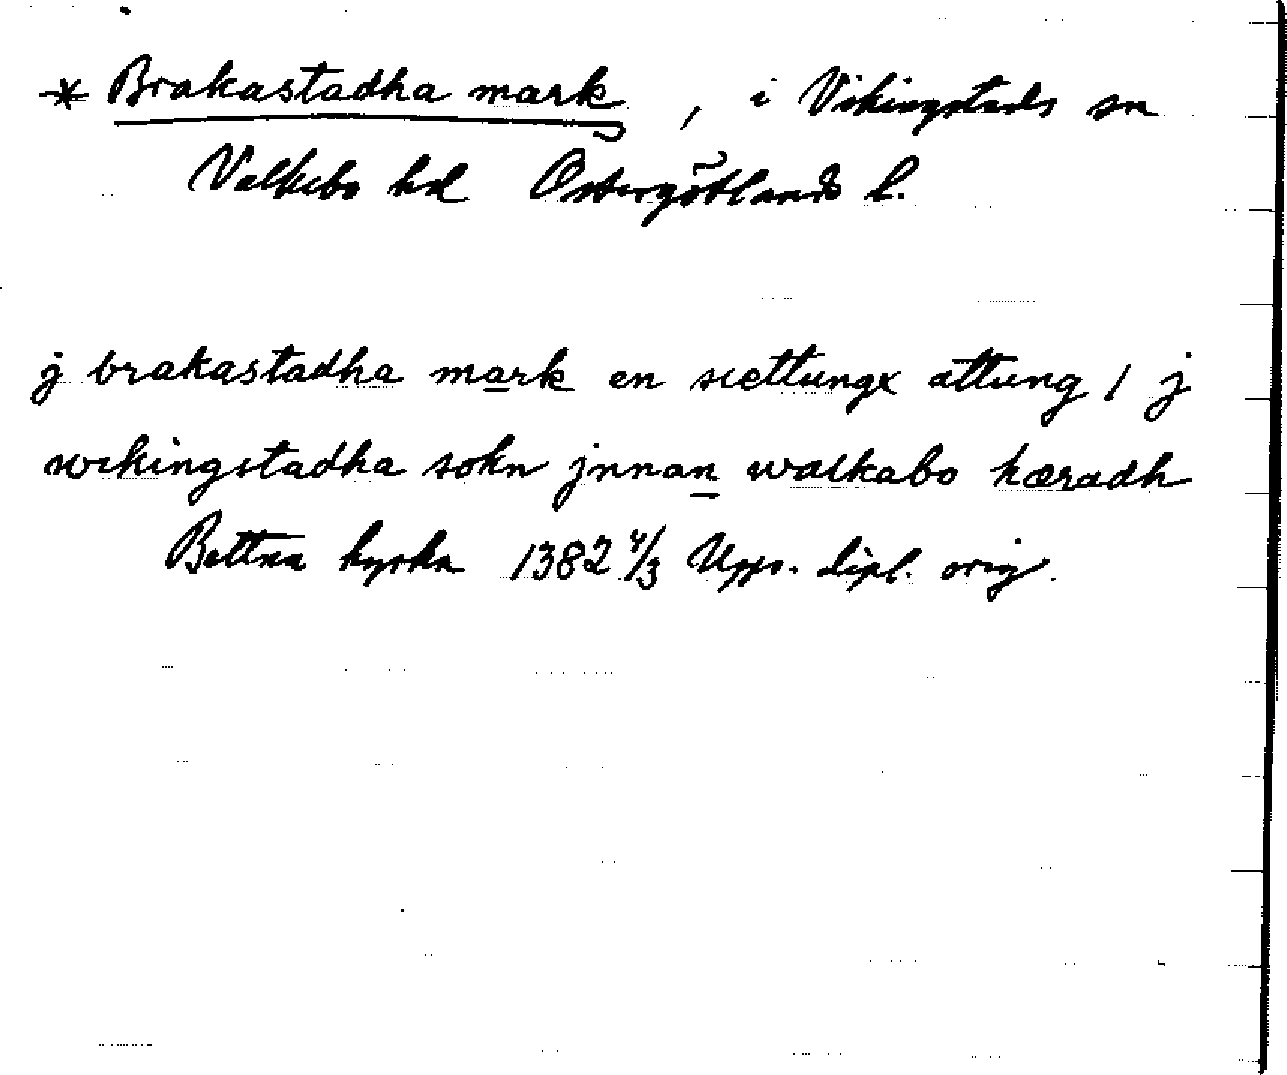 * Brakastadha mark, i Vikingstads sn
Valkebo hd Östergötlands l.
j brakastadha mark en siættungx attung / j
wikingstadha sokn jnnan walkabo hæradh
Bettna kyrka 1382 4/3 Upps. dipl. orig.